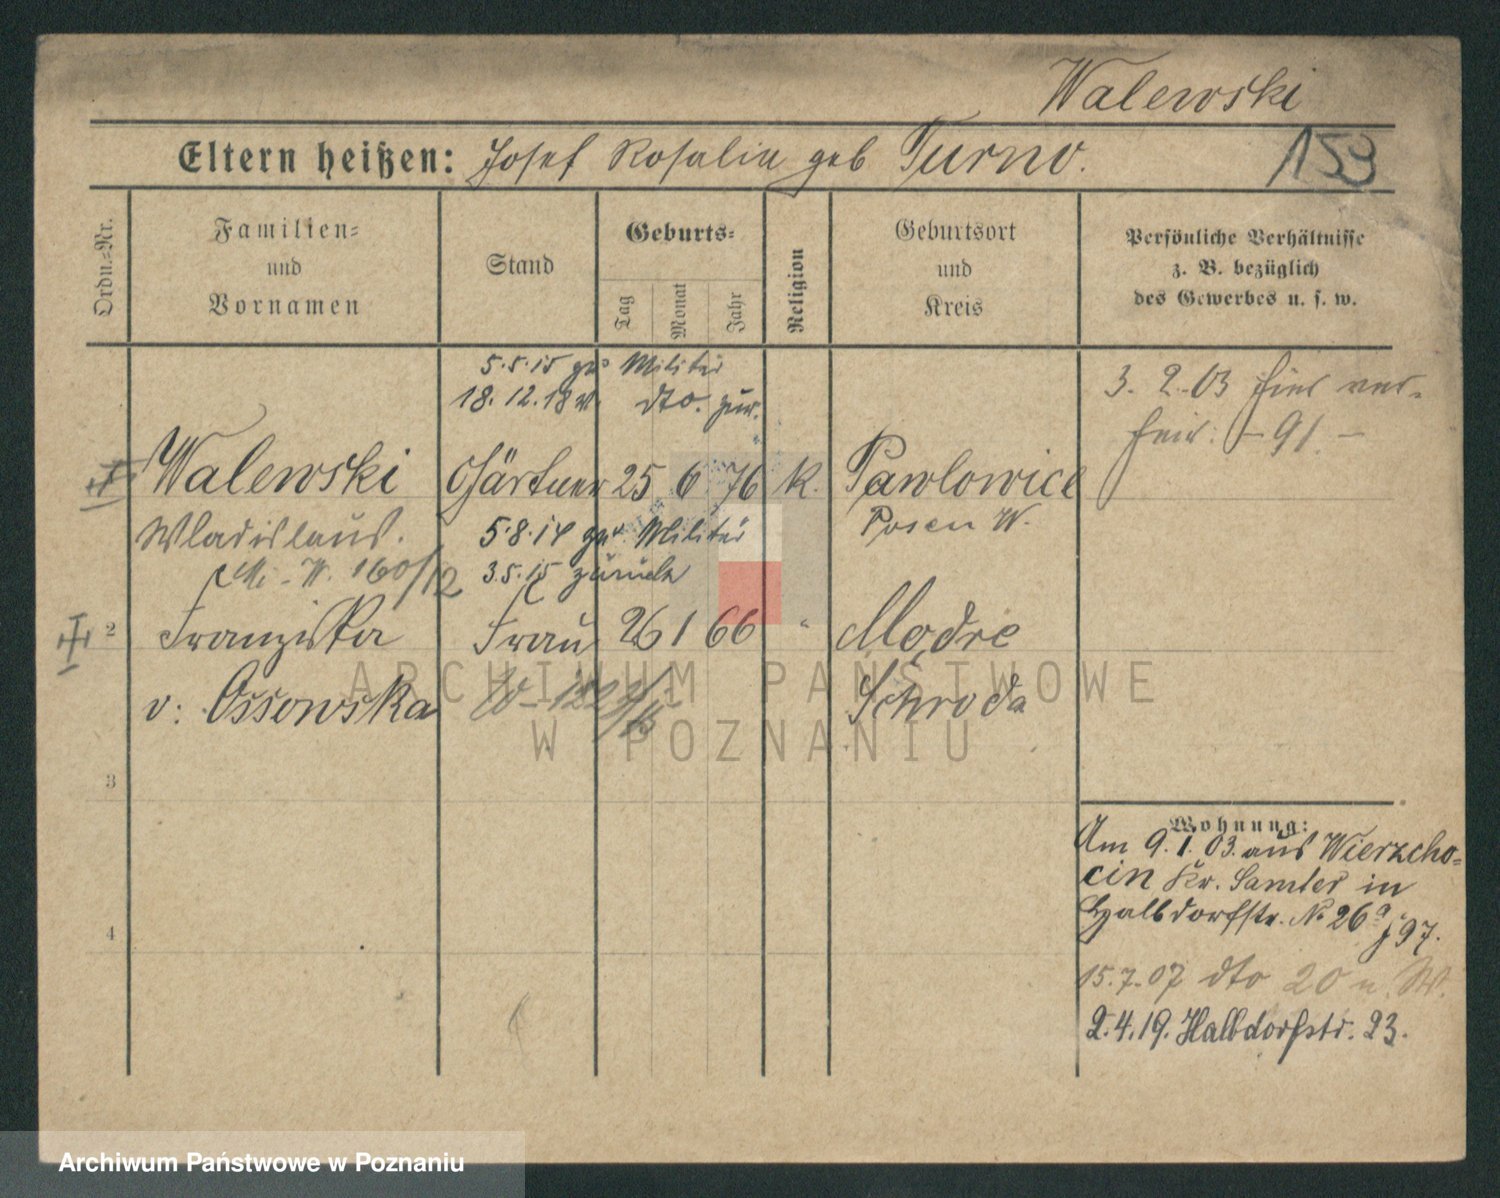 Walewski
Eltern heißen: Josef Rosalia geb Turno.
153
Ordn.-Nr.
Familien-
und
Vornamen
Stand
Geburts-
Tag
Monat
Jahr
Religion
Geburtsort
und
Kreis
Persönliche Verhältnisse
z. B. bezüglich
des Gewerbes u. s. w.
5.5.15 zu Militär
18.12.18 dto. zur.
3. 2. 03 hier ver-
heir: - 91. -
Walewski Gärtner 25 6 76 k. Pawlowice
Wladislaus. 5.8.14 zu Militär Posen W.
160/12 3.5.15 zurück
2 Franziska Frau 26 1 66 " Modre
v: Ossowska Schroda
3
4
Wohnung:
Am 9. 1. 03. aus Wierzcho-
cin Kr. Samter in
Halbdorfstr. No 26a j 97.
15.7.07 dto 20 n. W.
2.4.19. Halbdorfstr. 23.
ARCHIWUM PAŃSTWOWE
W POZNANIU
Archiwum Państwowe w Poznaniu